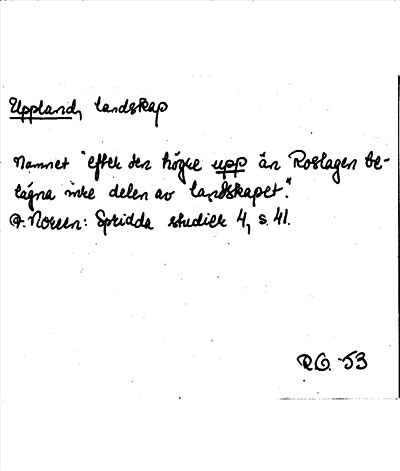 Uppland, landskap
Namnet "efter den högre upp än Roslagen be-
lägna inre delen av landskapet."
A. Noreen: Spridda studier 4, s. 41.
R.O. -53